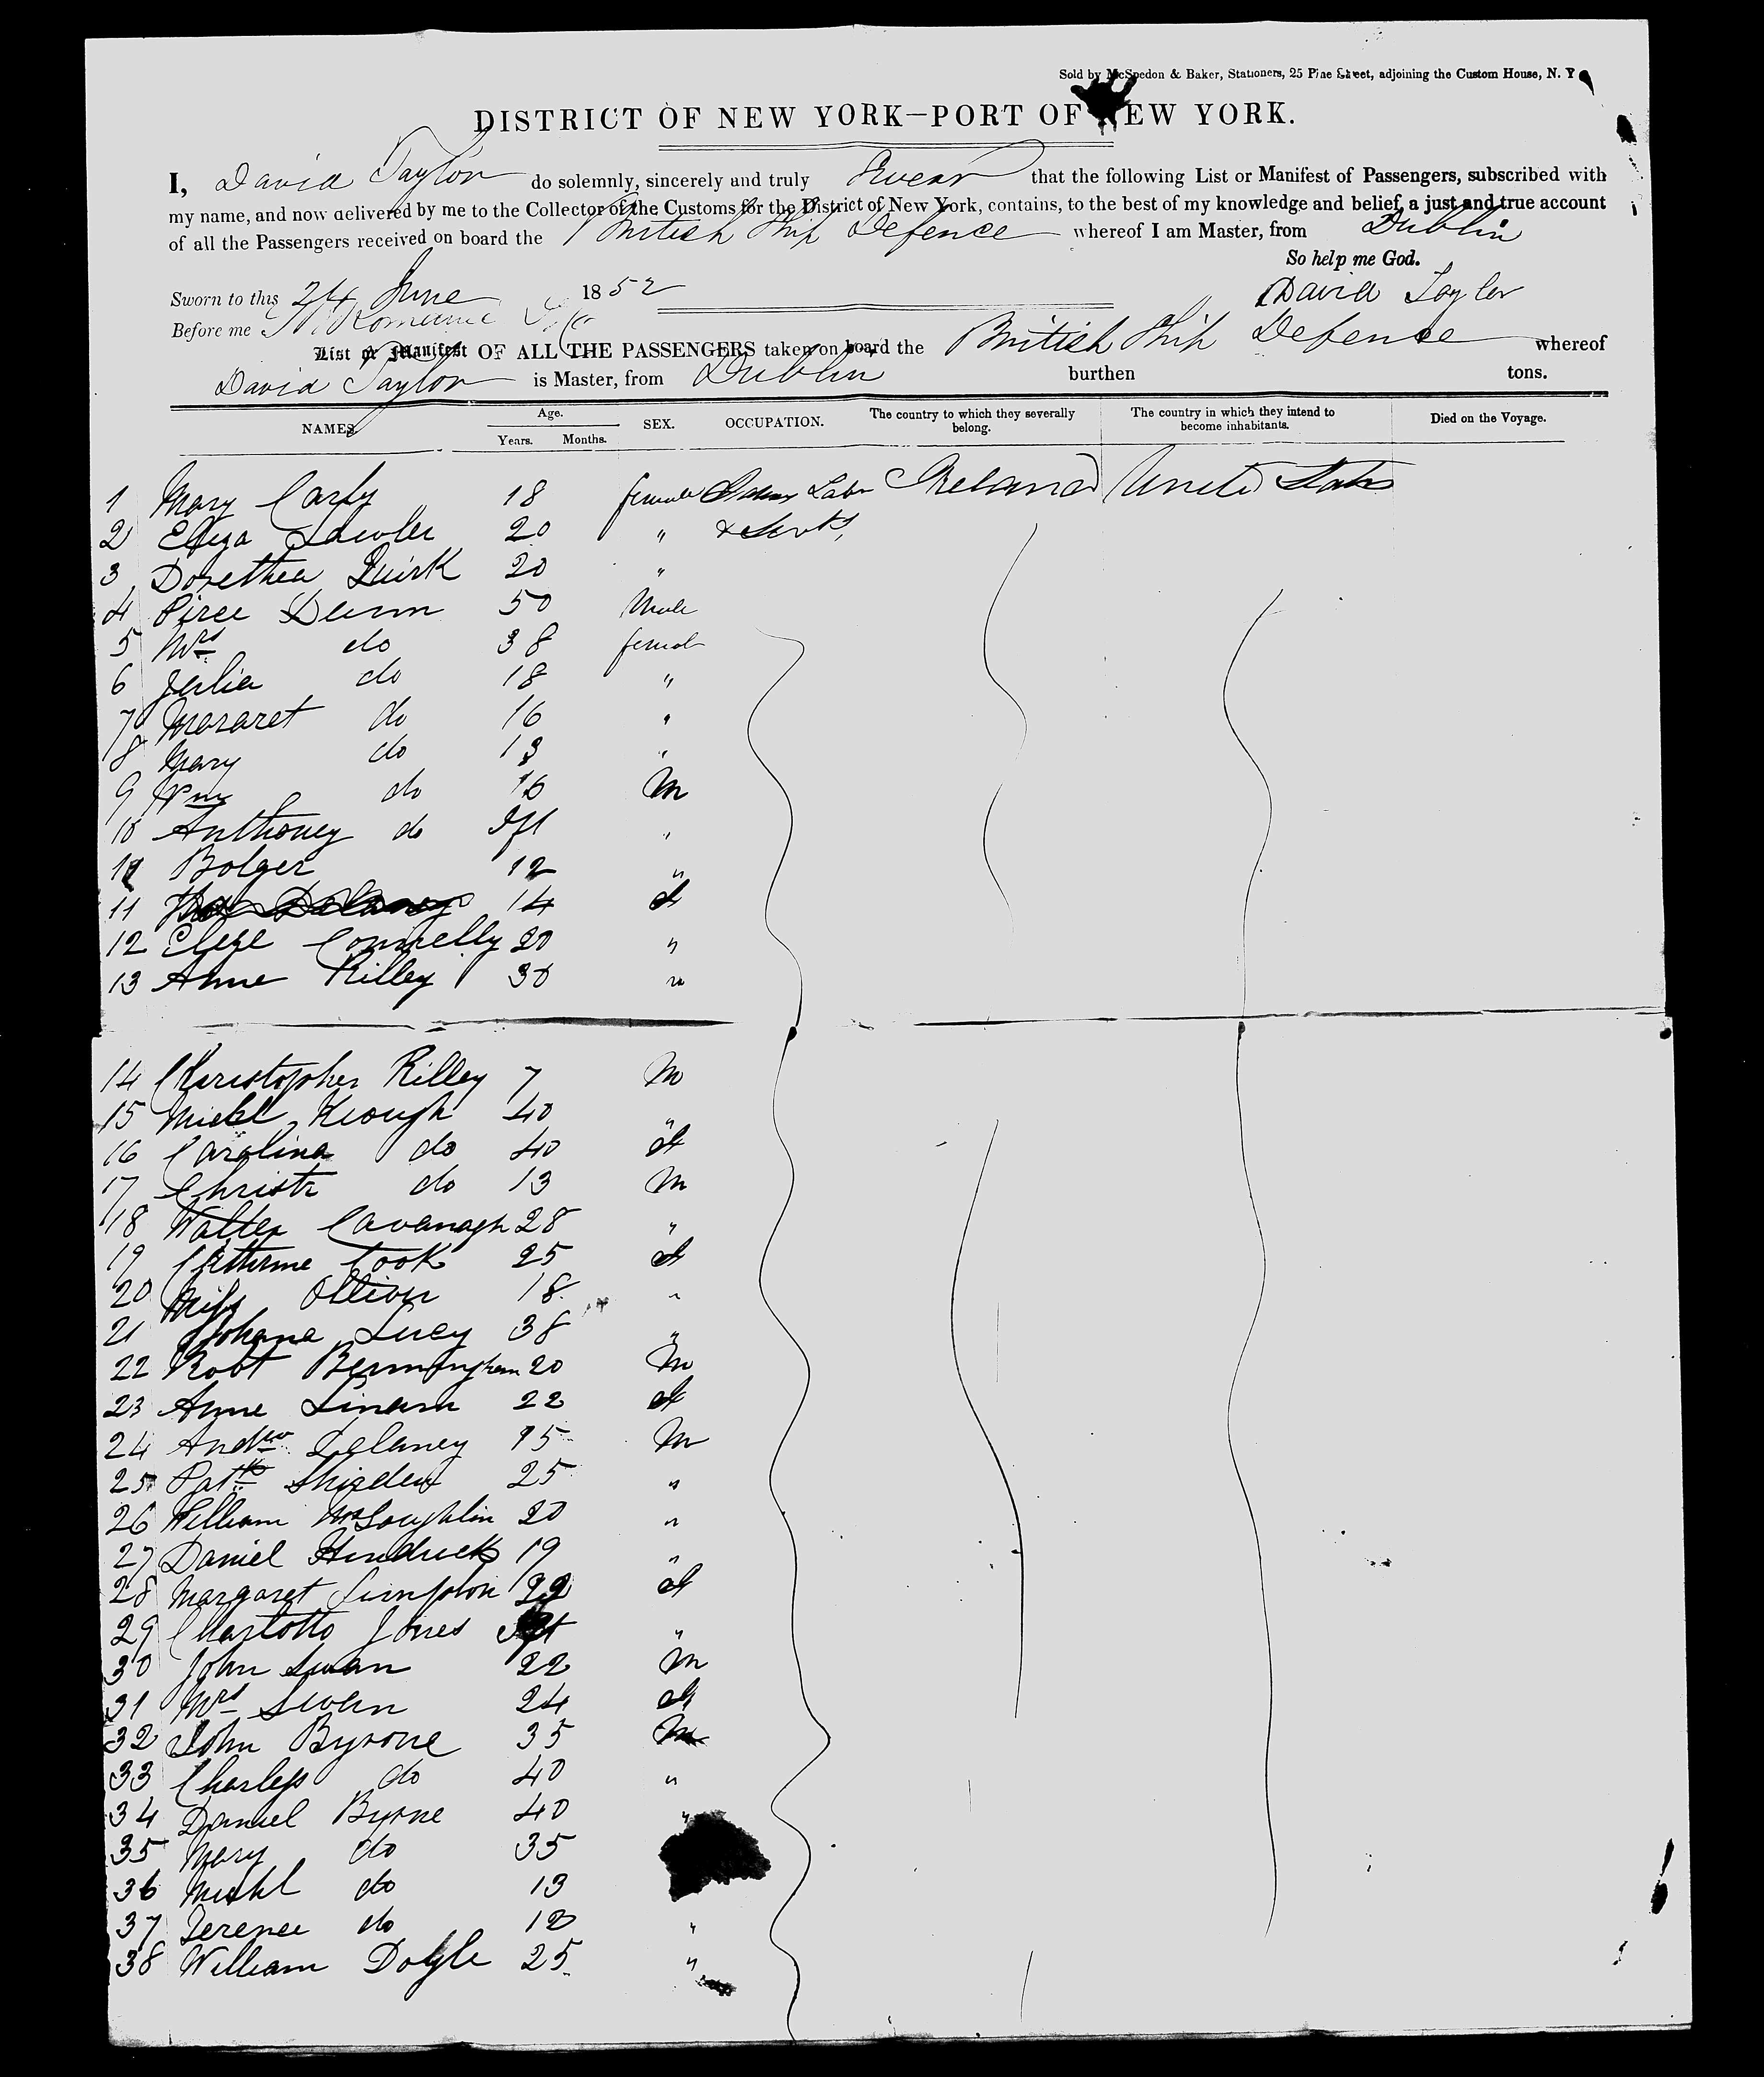 Sold by McSpedon & Baker, Stationers, 25 Pine Street, adjoining the Custom House, N. Y
DISTRICT OF NEW YORK—PORT OF NEW YORK.
I, David Taylor do solemnly, sincerely and truly Swear that the following List or Manifest of Passengers, subscribed with
my name, and now delivered by me to the Collector of the Customs for the District of New York, contains, to the best of my knowledge and belief, a just and true account
of all the Passengers received on board the British Ship Defence whereof I am Master, from Dublin
So help me God.
Sworn to this 24 June 1852 David Taylor
Before me
List or Manifest OF ALL THE PASSENGERS taken on board the British Ship Defence whereof
David Taylor is Master, from Dublin burthen tons.
NAMES. Age. Years. Months. SEX. OCCUPATION. The country to which they severally belong. The country in which they intend to become inhabitants. Died on the Voyage.
1 Mary Carty 18 female Labr Ireland United States
2 Eliza Lawler 20 " & Servts,
3 Dorethea Quirk 20 "
4 Pirce Dunn 50 Male
5 Mrs do 38 femal
6 Julia do 18 "
7 Margaret do 16 "
8 Mary do 13 "
9 Wm do 16 M
10 Anthoney do Ift "
11 Bolger 12 "
11 14 f
12 Elize Connelly 20 "
13 Anne Rilley 30 "
14 Christopher Rilley 7 M
15 Michl Keough 40 "
16 Carolina do 40 f
17 Christr do 13 M
18 Walter Cavanagh 28 "
19 Catherine Cook 25 f
20 Miss Ollivir 18 "
21 Johana Lucy 38 "
22 Robt Bermingham 20 M
23 Anne Linam 22 f
24 Andew Delaney 15 M
25 Patk 25 "
26 William McLoughlin 20 "
27 Daniel Hendrick 19 "
28 Margaret Simpson 22 f
29 Charlotto Jones "
30 John Swan 22 M
31 Mrs Swan 24 f
32 John Byrone 35 M
33 Charless do 40 "
34 Daniel Byrne 40 "
35 Mary do 35
36 Michl do 13
37 Terence do 12 "
38 William Doyle 25 "